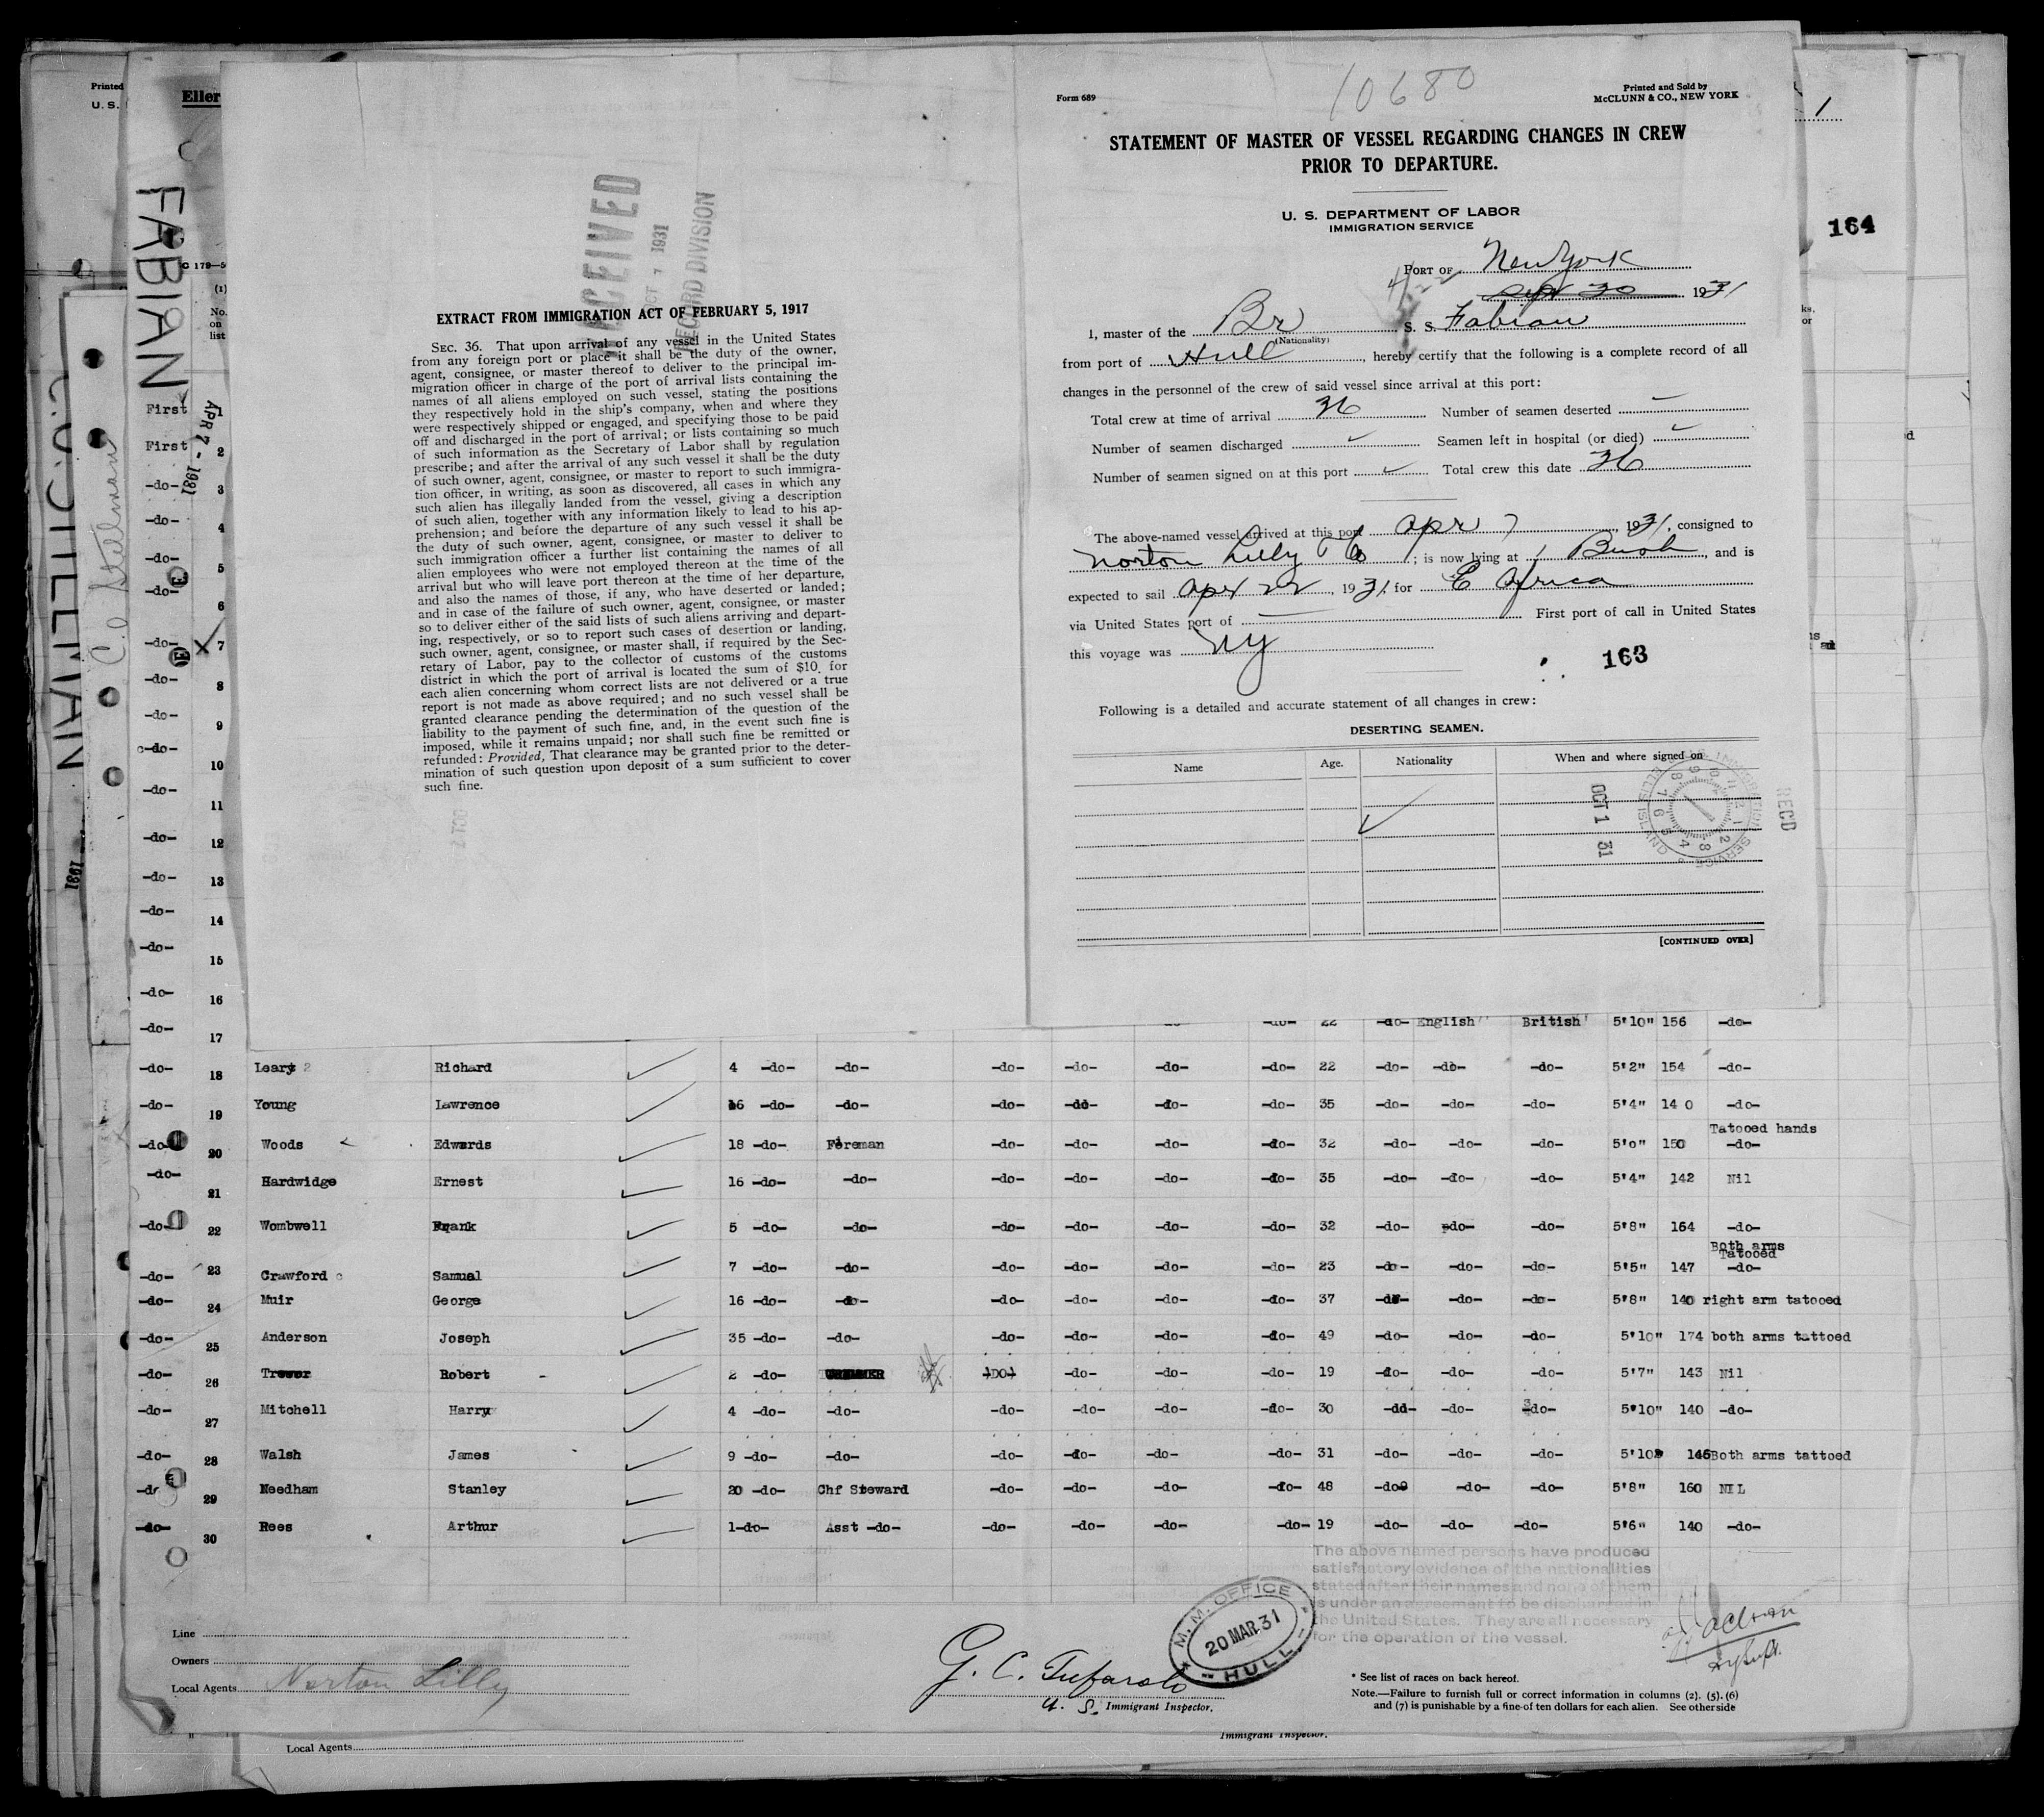 Printed
U. S.
Eller
FABIAN
APR 7 - 1931
C. O. STILLMAN
C.O. Stillman
1931
(1)
No.
on
list
RECEIVED
OCT 7 1931
RECORD DIVISION
EXTRACT FROM IMMIGRATION ACT OF FEBRUARY 5, 1917
SEC. 36. That upon arrival of any vessel in the United States
from any foreign port or place it shall be the duty of the owner,
agent, consignee, or master thereof to deliver to the principal im-
migration officer in charge of the port of arrival lists containing the
names of all aliens employed on such vessel, stating the positions
they respectively hold in the ship's company, when and where they
were respectively shipped or engaged, and specifying those to be paid
off and discharged in the port of arrival; or lists containing so much
of such information as the Secretary of Labor shall by regulation
prescribe; and after the arrival of any such vessel it shall be the duty
of such owner, agent, consignee, or master to report to such immigra-
tion officer, in writing, as soon as discovered, all cases in which any
such alien has illegally landed from the vessel, giving a description
of such alien, together with any information likely to lead to his ap-
prehension; and before the departure of any such vessel it shall be
the duty of such owner, agent, consignee, or master to deliver to
such immigration officer a further list containing the names of all
alien employees who were not employed thereon at the time of the
arrival but who will leave port thereon at the time of her departure,
and also the names of those, if any, who have deserted or landed;
and in case of the failure of such owner, agent, consignee, or master
so to deliver either of the said lists of such aliens arriving and depart-
ing, respectively, or so to report such cases of desertion or landing,
such owner, agent, consignee, or master shall, if required by the Sec-
retary of Labor, pay to the collector of customs of the customs
district in which the port of arrival is located the sum of $10 for
each alien concerning whom correct lists are not delivered or a true
report is not made as above required; and no such vessel shall be
granted clearance pending the determination of the question of the
liability to the payment of such fine, and, in the event such fine is
imposed, while it remains unpaid; nor shall such fine be remitted or
refunded: Provided, That clearance may be granted prior to the deter-
mination of such question upon deposit of a sum sufficient to cover
such fine.
Form 689
10680
Printed and Sold by
McCLUNN & CO., NEW YORK
1
164
STATEMENT OF MASTER OF VESSEL REGARDING CHANGES IN CREW
PRIOR TO DEPARTURE.
U. S. DEPARTMENT OF LABOR
IMMIGRATION SERVICE
PORT OF New York
4/22 Sept 30 1931
I, master of the Br S. S. Fabian
(Nationality)
from port of Hull, hereby certify that the following is a complete record of all
changes in the personnel of the crew of said vessel since arrival at this port:
Total crew at time of arrival 36 Number of seamen deserted
Number of seamen discharged Seamen left in hospital (or died)
Number of seamen signed on at this port Total crew this date 36
The above-named vessel arrived at this port Apr 7, 1931, consigned to
Norton Lilly & Co; is now lying at Bush, and is
expected to sail Apr 22, 1931, for E Africa
via United States port of First port of call in United States
this voyage was NY
163
Following is a detailed and accurate statement of all changes in crew:
DESERTING SEAMEN.
Name Age. Nationality When and where signed on
OCT 1 31
RECD
IMMIGRATION SERVICE ELLIS ISLAND
[CONTINUED OVER]
First 1
First 2
-do- 3
-do- 4
-do- 5
-do- 6
-do- 7
-do- 8
-do- 9
-do- 10
-do- 11
-do- 12
-do- 13
-do- 14
-do- 15
-do- 16
-do- 17 -do- 22 -do- English British 5'10" 156 -do-
-do- 18 Leary Richard 4 -do- -do- -do- -do- -do- -do- 22 -do- -do- -do- 5'2" 154 -do-
-do- 19 Young Lawrence 16 -do- -do- -do- -do- -do- -do- 35 -do- -do- -do- 5'4" 140 -do-
Tatooed hands
-do- 20 Woods Edwards 18 -do- Fireman -do- -do- -do- -do- 32 -do- -do- -do- 5'0" 150 -do-
-do- 21 Hardwidge Ernest 16 -do- -do- -do- -do- -do- -do- 35 -do- -do- -do- 5'4" 142 Nil
-do- 22 Wombwell Frank 5 -do- -do- -do- -do- -do- -do- 32 -do- -do- -do- 5'8" 164 -do-
Both arms
Tatooed
-do- 23 Crawford Samual 7 -do- -do- -do- -do- -do- -do- 23 -do- -do- -do- 5'5" 147 -do-
-do- 24 Muir George 16 -do- -do- -do- -do- -do- -do- 37 -do- -do- -do- 5'8" 140 right arm tatooed
-do- 25 Anderson Joseph 35 -do- -do- -do- -do- -do- -do- 49 -do- -do- -do- 5'10" 174 both arms tattoed
-do- 26 Robert 2 -do- -DO- -do- -do- -do- 19 -do- -do- -do- 5'7" 143 Nil
-do- 27 Mitchell Harry 4 -do- -do- -do- -do- -do- -do- 30 -do- -do- -do- 5'10" 140 -do-
-do- 28 Walsh James 9 -do- -do- -do- -do- -do- -do- 31 -do- -do- -do- 5'10 Both arms tattoed
-do- 29 Needham Stanley 20 -do- Chf Steward -do- -do- -do- -do- 48 -do- -do- -do- 5'8" 160 NIL
-do- 30 Rees Arthur 1-do- Asst -do- -do- -do- -do- -do- 19 -do- -do- -do- 5'6" 140 -do-
The above named persons have produced
satisfactory evidence of the nationalities
stated after their names and none of them
is under an agreement to be discharged in
the United States. They are all necessary
for the operation of the vessel.
M. M. OFFICE
20 MAR 31
HULL
Line
Owners
Local Agents Norton Lilly
G. C. Tufarolo
U. S. Immigrant Inspector.
* See list of races on back hereof.
Note.—Failure to furnish full or correct information in columns (2), (5), (6)
and (7) is punishable by a fine of ten dollars for each alien. See other side
Local Agents
Immigrant Inspector.